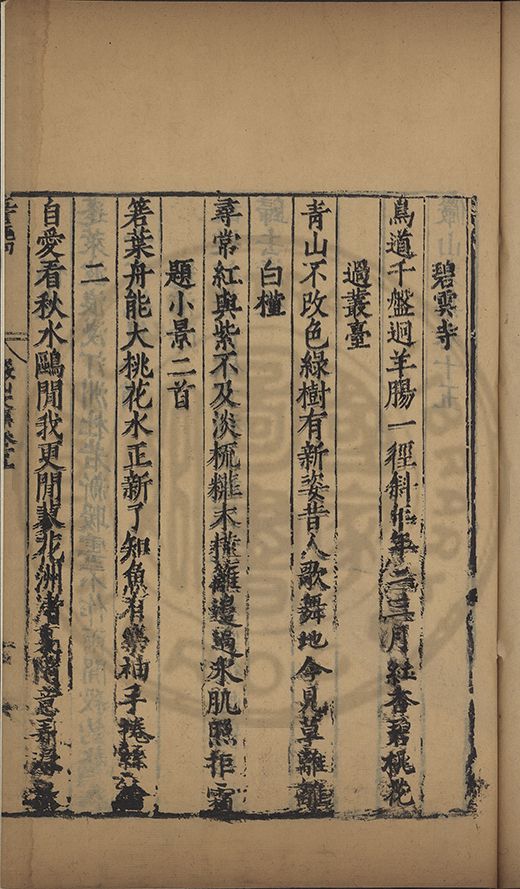 碧雲寺
鳥道千盤迴羊腸一徑斜年年二三月紅杏碧桃花
過叢臺
青山不改色綠樹有新姿昔人歌舞地今見草離離
白槿
尋常紅與紫不及淡梳糚木槿籬邊過氷肌照拒霜
題小景二首
箬葉舟能大桃花水正新了知魚有樂袖手捲絲綸
二
自愛看秋水鷗閒我更閒蓼花洲渚